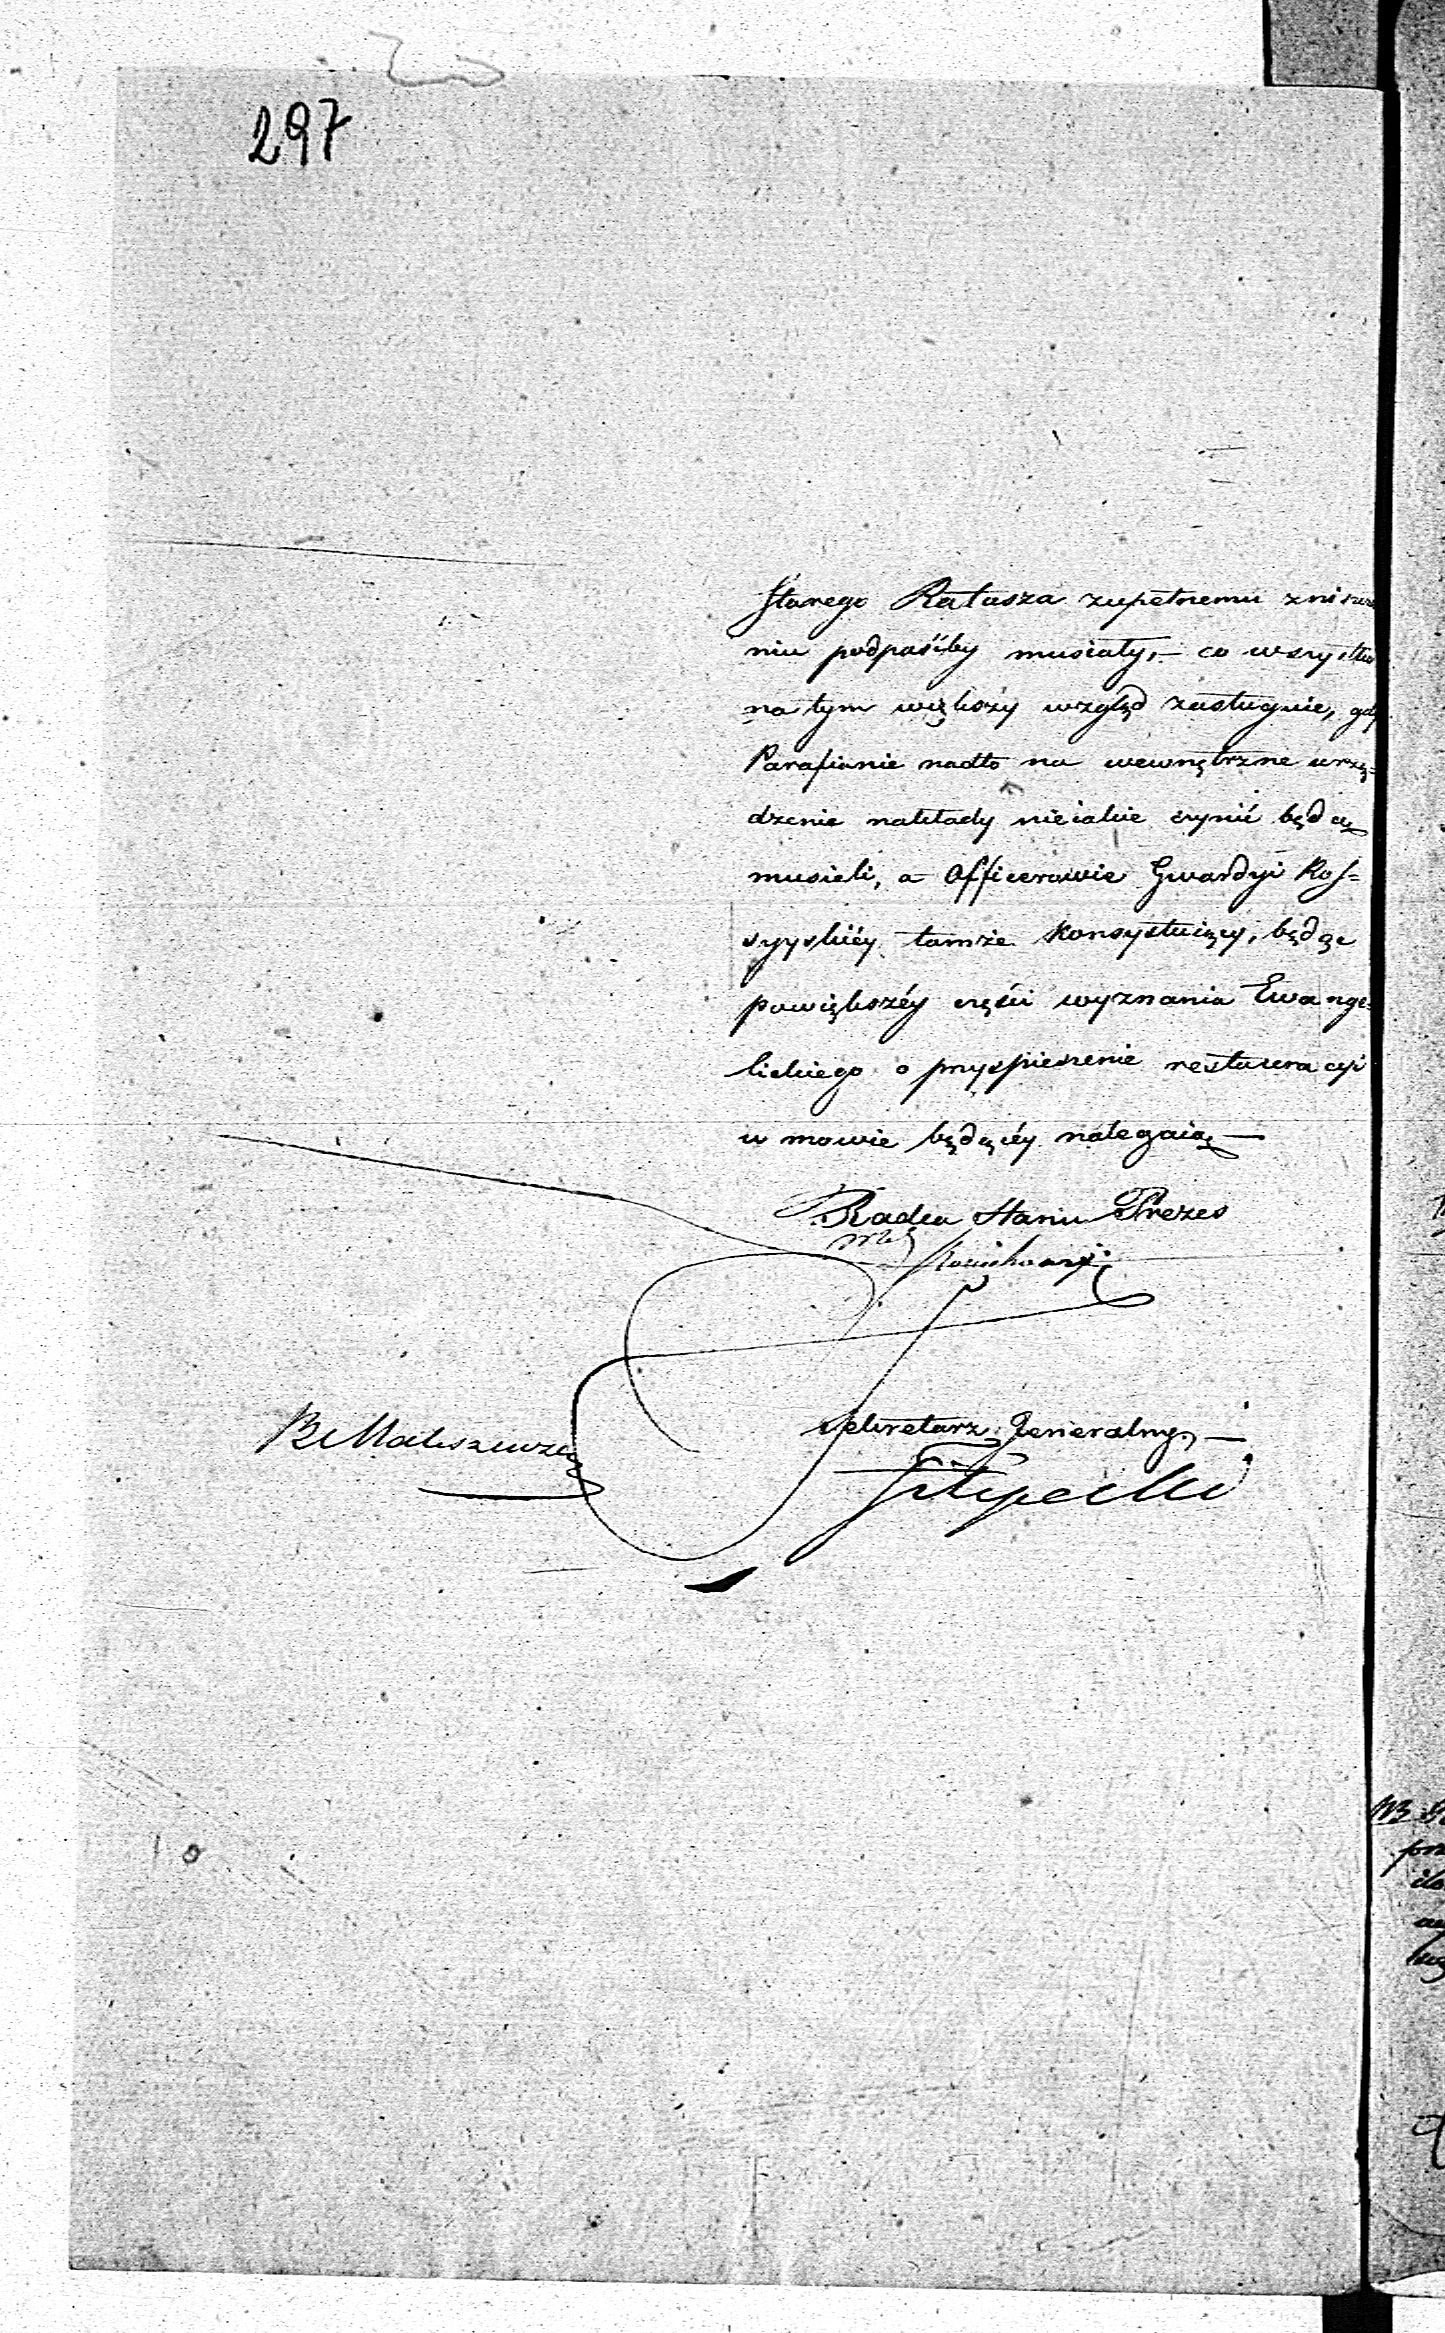 297
starego Ratusza zupełnemu znisz
niu podpaśćby musiały, – co wszystko
na tym większy wzgląd zasługuie, gdy
Parafianie nadto na wewnętrzne urzą-
dzenie nakłady nieiakie czynić będą
musieli, a Officerowie Gwardyi Ros-
syyskiéy tamże konsystuiący, będąc
powiększéy części wyznania Ewange-
lickiego o przyspieszenie restauracyi
w mowie będącéy nalegaią –
Radca Stanu Prezes
Sekretarz Generalny, –
Filipecki